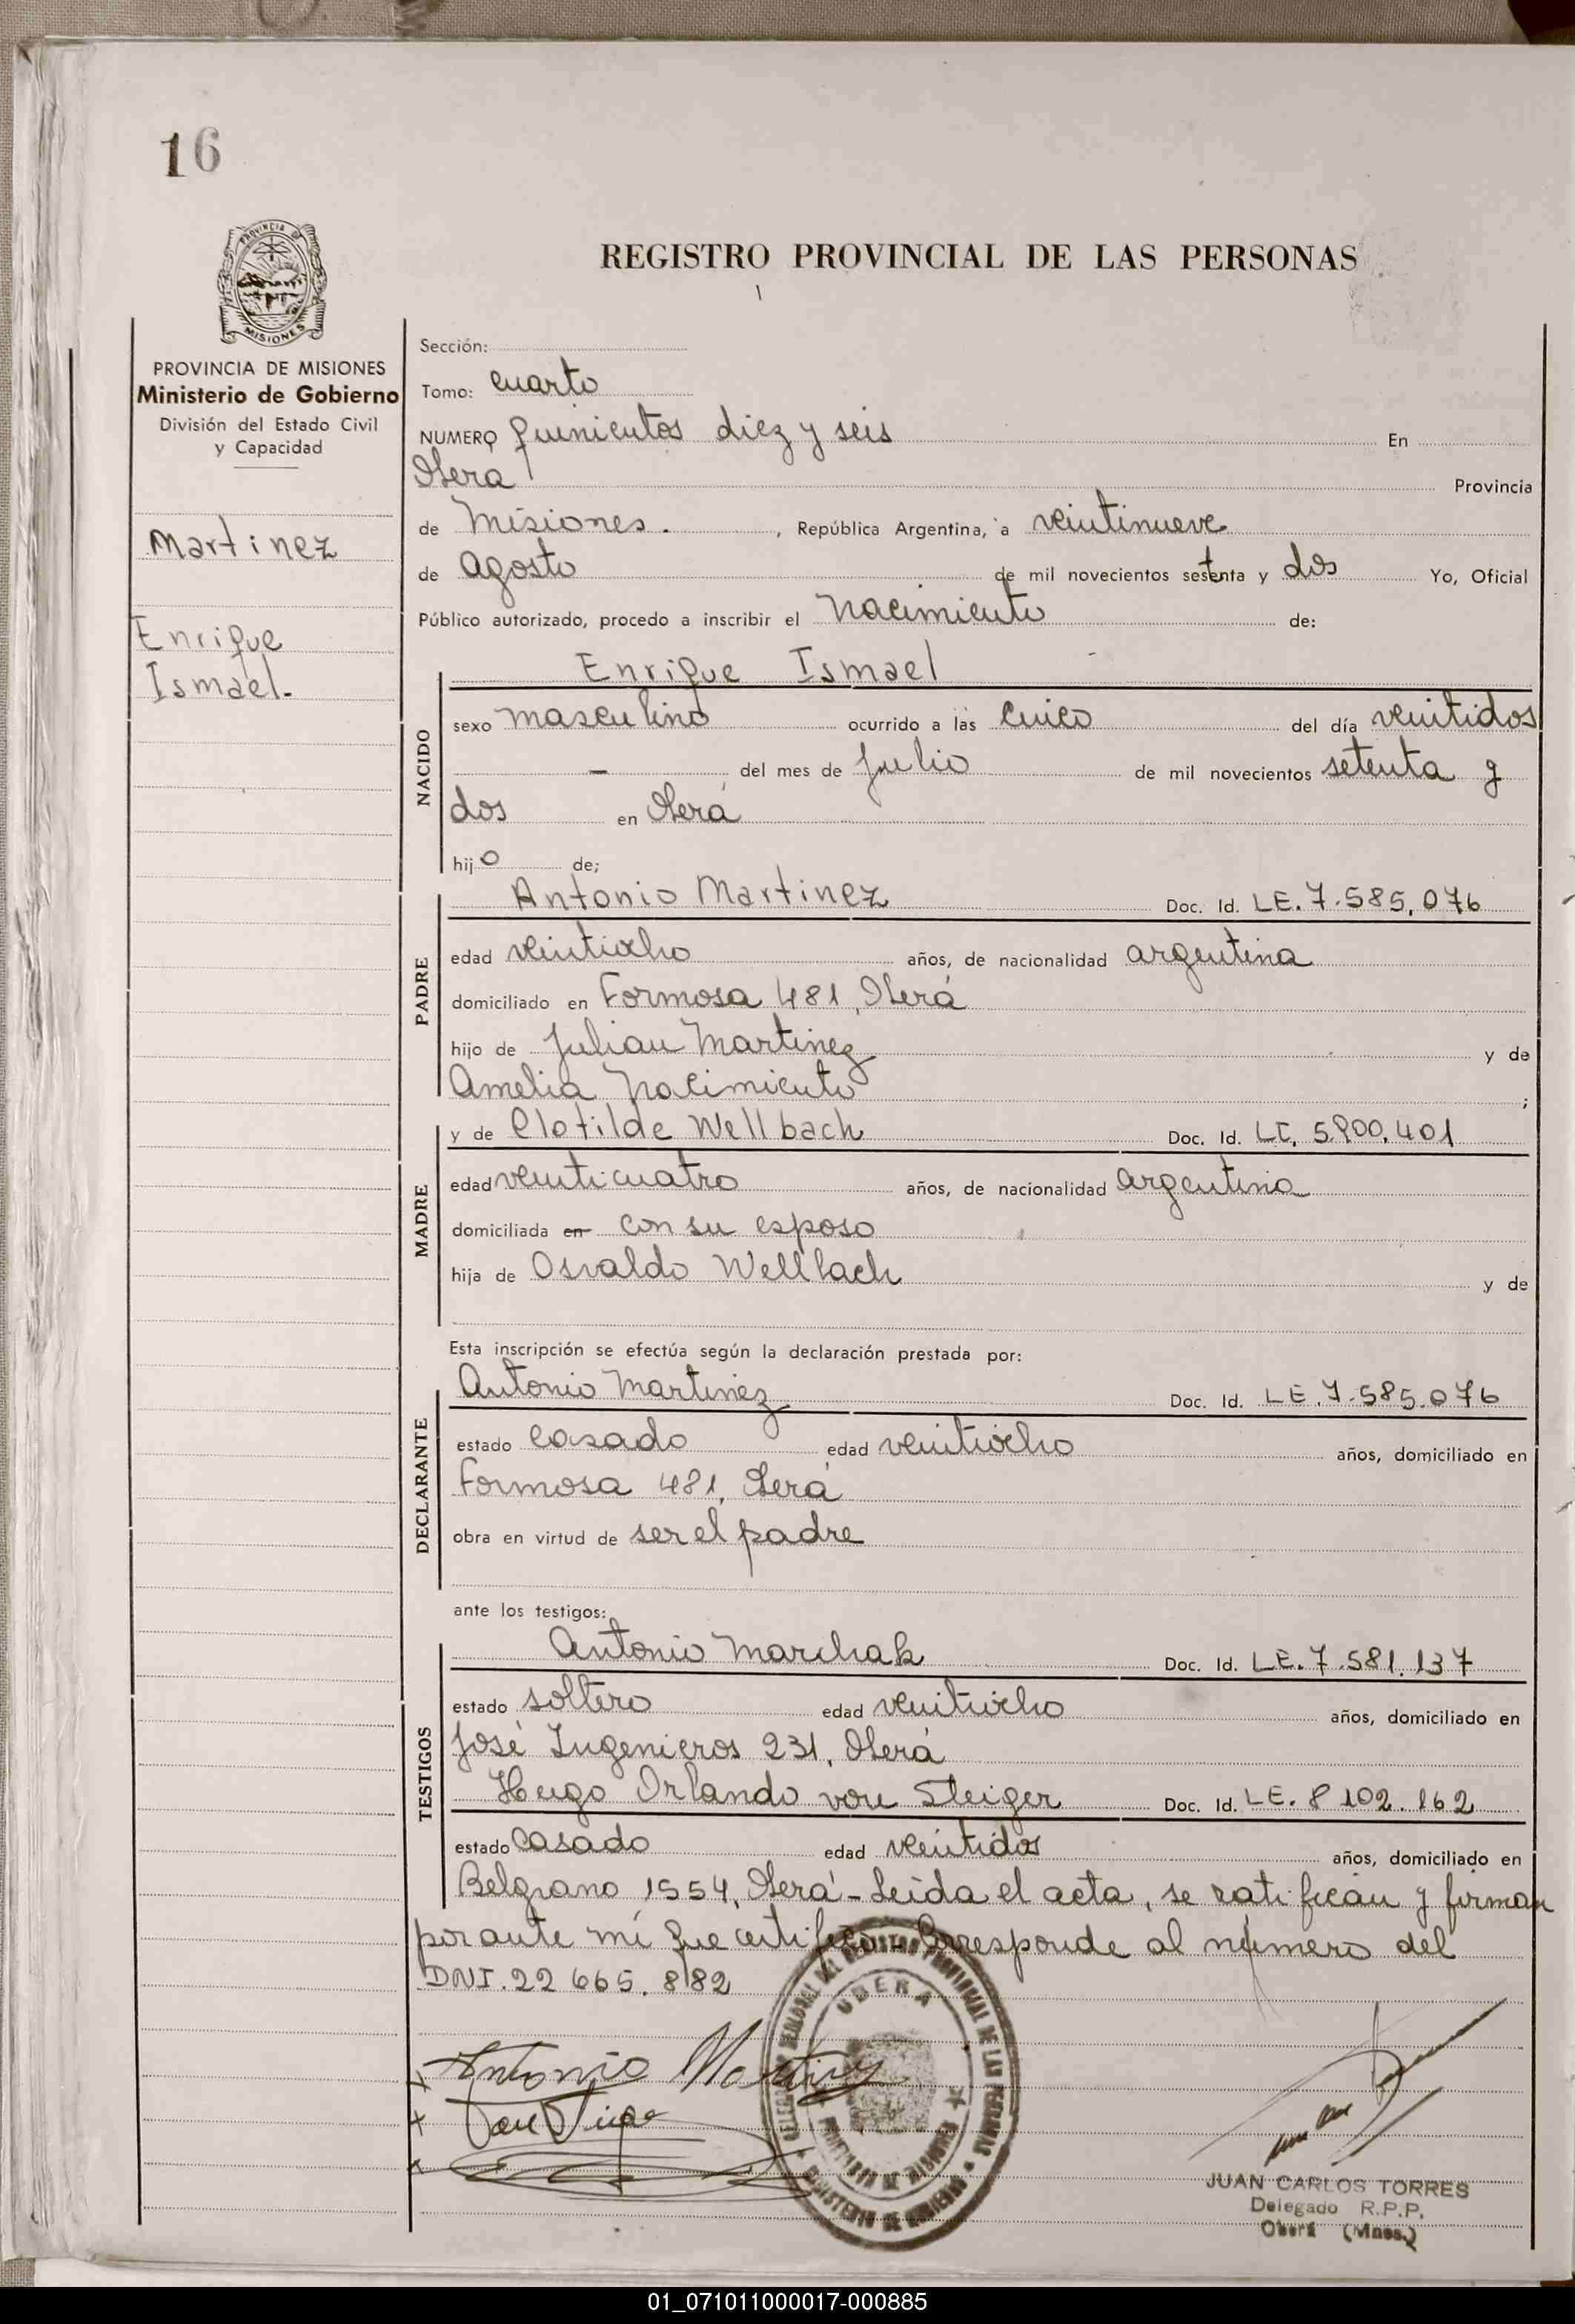 16
PROVINCIA DE
MISIONES
REGISTRO PROVINCIAL DE LAS PERSONAS
PROVINCIA DE MISIONES
Ministerio de Gobierno
División del Estado Civil
y Capacidad
Martinez
Enrique
Ismael.-
Sección:
Tomo: cuarto
NUMERO quinientos diez y seis En
Oberá Provincia
de Misiones. , República Argentina, a veintinueve
de Agosto de mil novecientos setenta y dos Yo, Oficial
Público autorizado, procedo a inscribir el nacimiento de:
Enrique Ismael
NACIDO
sexo masculino ocurrido a las cinco del día veintidos
— del mes de julio de mil novecientos setenta y
dos en Oberá
hijo de;
PADRE
Antonio Martinez Doc. Id. LE. 7.585.076
edad veintiocho años, de nacionalidad argentina
domiciliado en Formosa 481, Oberá
hijo de Julian Martinez y de
Amelia Nacimiento ;
MADRE
y de Clotilde Wellbach Doc. Id. LC. 5.900.401
edad veinticuatro años, de nacionalidad argentina
domiciliada en con su esposo
hija de Osvaldo Wellbach y de
Esta inscripción se efectúa según la declaración prestada por:
DECLARANTE
Antonio Martinez Doc. Id. LE. 7.585.076
estado casado edad veintiocho años, domiciliado en
Formosa 481, Oberá
obra en virtud de ser el padre
ante los testigos:
TESTIGOS
Antonio Marchak Doc. Id. LE. 7.581.137
estado soltero edad veintiocho años, domiciliado en
José Ingenieros 231, Oberá
Hugo Orlando von Steiger Doc. Id. LE. 8 102.162
estado casado edad veintidos años, domiciliado en
Belgrano 1554, Oberá - Leida el acta, se ratifican y firman
por ante mí que certifico - Corresponde al número del
DNI. 22 665.882
OBERA
Antonio Martinez
JUAN CARLOS TORRES
Delegado R.P.P.
Oberá (Mnes.)
01_071011000017-000885